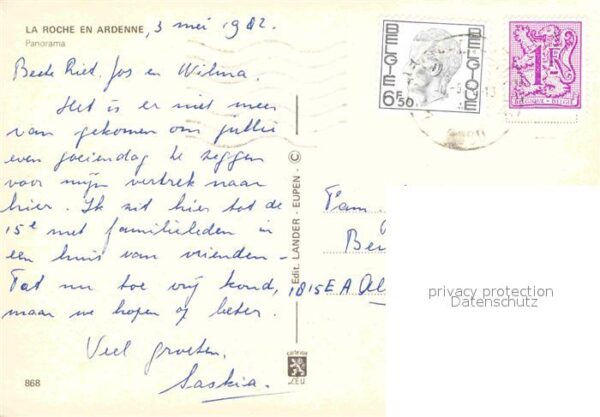 LA ROCHE EN ARDENNE, 3 mei 1982.
Panorama
Beste Riet, Jos en Wilma.
Het is er niet meer
van gekomen om jullie
even goeiendag te zeggen
voor mijn vertrek naar
hier. Ik zit hier tot de
15e met familieleden in
een huis van vrienden -
Tot nu toe vrij koud,
maar we hopen op beter.
Veel groeten.
Saskia.
868
Edit. LANDER - EUPEN - ©
BELGIE
BELGIQUE
6F50
1F
BELGIQUE - BELGIË
Fam.
Be
1815 EA Al
privacy protection
Datenschutz